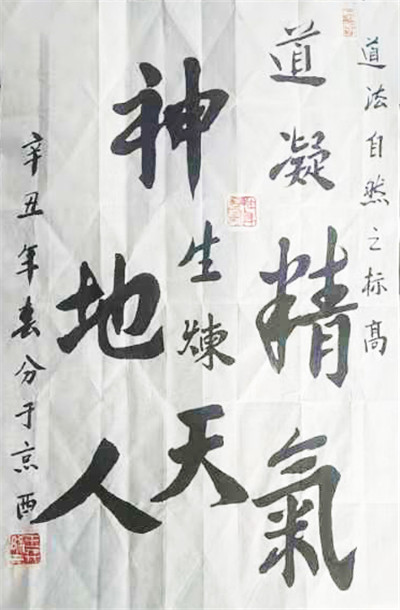 道法自然之标高
道凝精氣
神生煉天
地人
辛丑年春分于京西